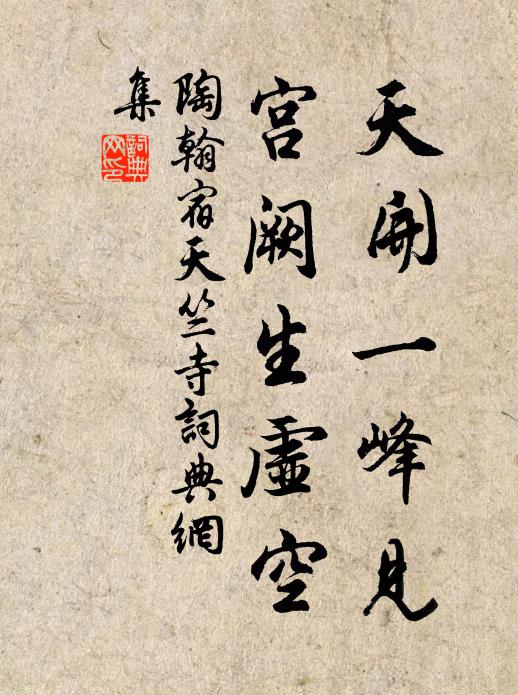 天開一峰見
宮闕生虛空
陶翰宿天竺寺詞典網
集
詞典
網印